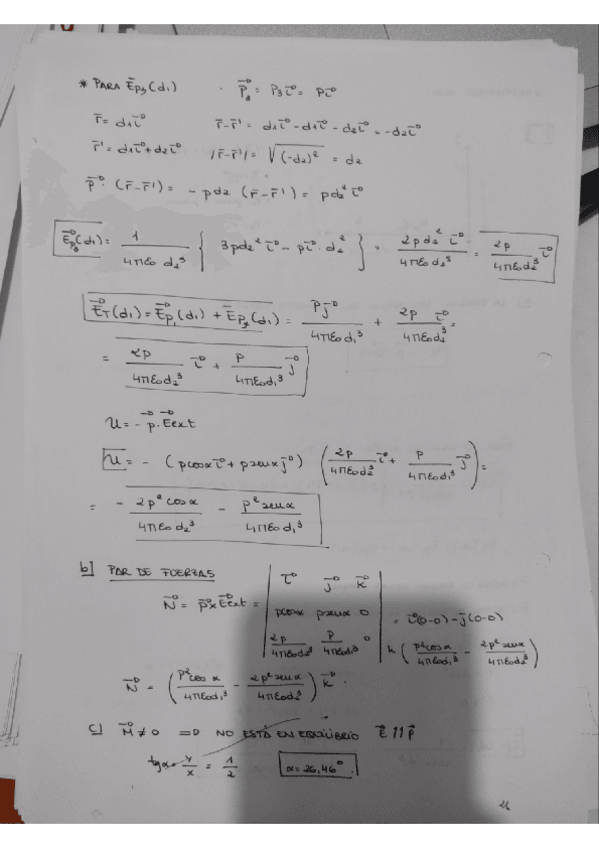 * PARA E̅p₃(d₁) · P⃗₃ = P₃ i⃗ = p i⃗
r̅ = d₁ i⃗ r̅ - r̅' = d₁ i⃗ - d₁ i⃗ - d₂ i⃗ = -d₂ i⃗
r̅' = d₁ i⃗ + d₂ i⃗ /r̅ - r̅'/ = √(-d₂)² = d₂
p⃗ · (r̅ - r̅') = - p d₂ (r̅ - r̅') = p d₂² i⃗
E⃗p₃(d₁) = 1/(4πε₀ d₂³) { 3pd₂² i⃗ - p i⃗ · d₂² } = 2pd₂² i⃗/(4πε₀ d₂⁵) = 2p/(4πε₀ d₂³) i⃗
E⃗T(d₁) = E⃗p₁(d₁) + E̅p₃(d₁) = P j⃗/(4πε₀ d₁³) + 2p i⃗/(4πε₀ d₂³) =
= 2p/(4πε₀ d₂³) i⃗ + P/(4πε₀ d₁³) j⃗
U = - p⃗ · E⃗ext
U = - (p cosα i⃗ + p senα j⃗) (2p/(4πε₀ d₂³) i⃗ + P/(4πε₀ d₁³) j⃗) =
= - 2p² cosα/(4πε₀ d₂³) - p² senα/(4πε₀ d₁³)
b] PAR DE FUERZAS
N⃗ = p⃗ x E⃗ext = | i⃗ j⃗ k⃗ |
| pcosα psenα 0 | = i⃗(0-0) - j⃗(0-0)
| 2p/(4πε₀d₂³) P/(4πε₀d₁³) 0 | k (p² cosα/(4πε₀d₁³) - 2p² senα/(4πε₀d₂³))
N⃗ = (p² cosα/(4πε₀d₁³) - 2p² senα/(4πε₀d₂³)) k⃗ .
c) M⃗ ≠ 0 => NO ESTÁ EN EQUILIBRIO E⃗ // p⃗
tgα = y/x = 1/2 α = 26,46°
26